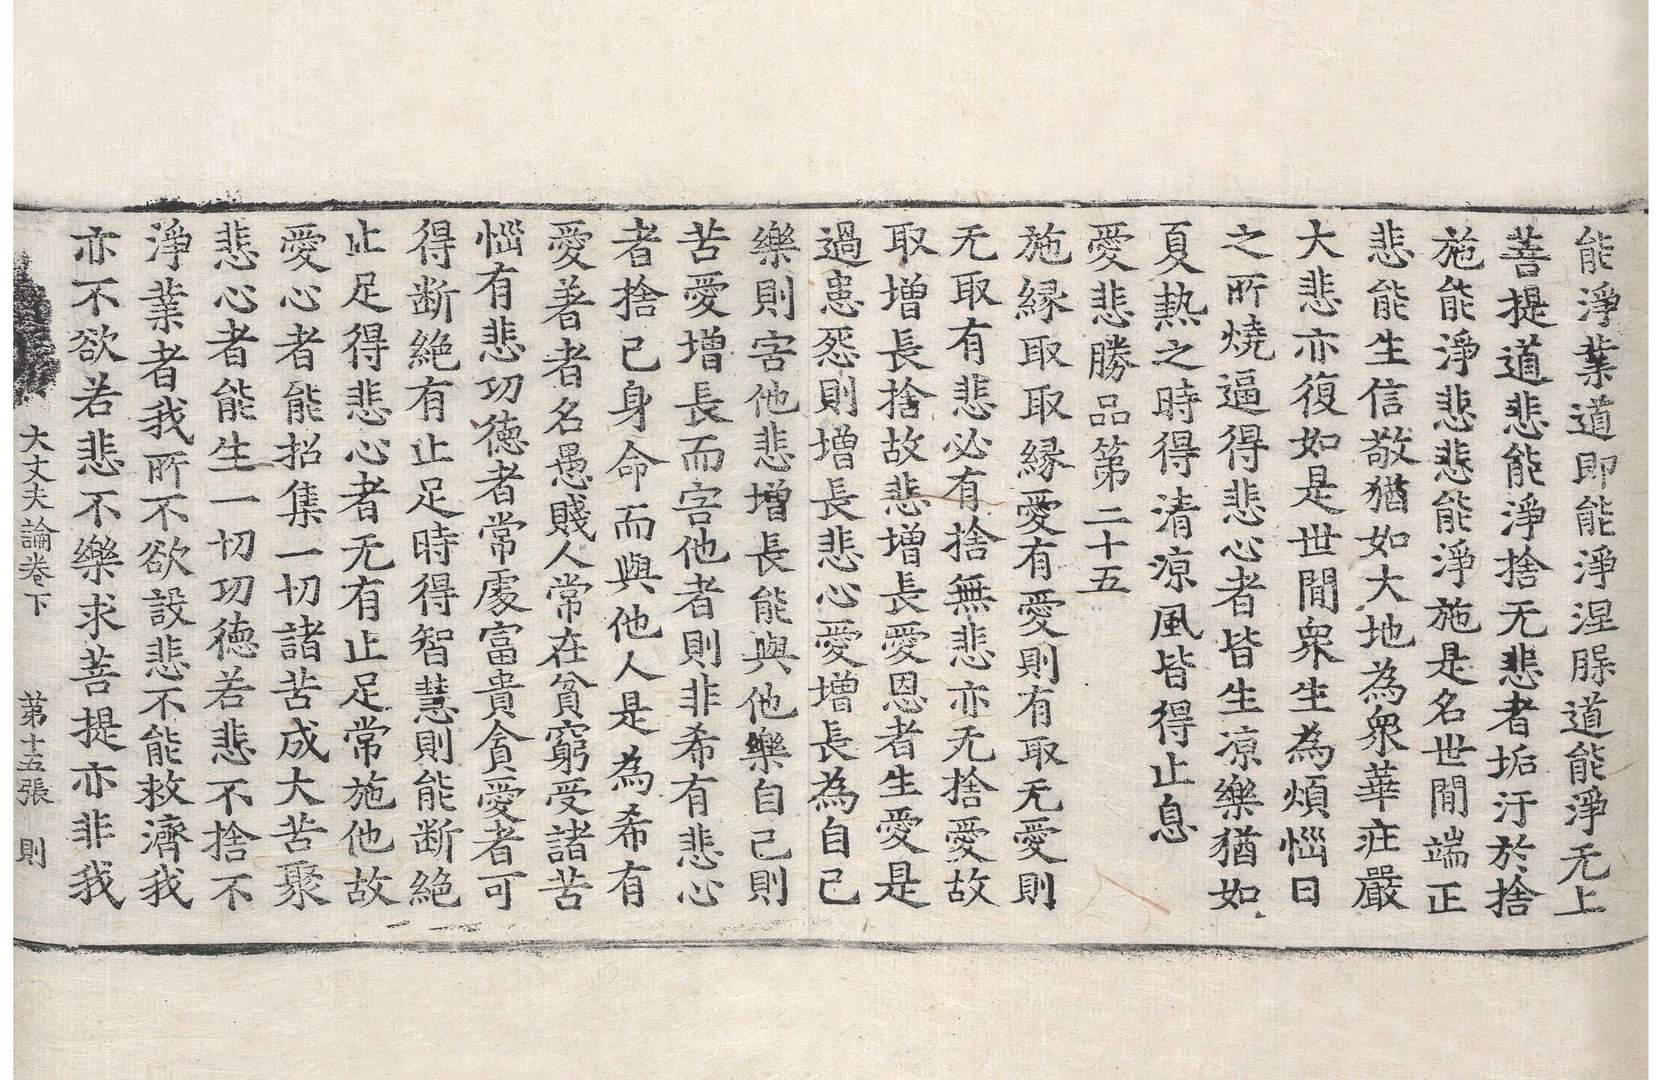 能淨業道即能淨涅槃道能淨无上
菩提道悲能淨捨无悲者垢汙於捨
施能淨悲悲能淨施是名世閒端正
悲能生信敬猶如大地為衆華疘嚴
大悲亦復如是世閒衆生為煩惱日
之所燒逼得悲心者皆生涼樂猶如
夏熱之時得清涼風皆得止息
愛悲勝品第二十五
施縁取取縁愛有愛則有取无愛則
无取有悲必有捨無悲亦无捨愛故
取增長捨故悲增長愛恩者生愛是
過患怨則增長悲心愛增長為自己
樂則害他悲增長能與他樂自己則
苦愛增長而害他者則非希有悲心
者捨己身命而與他人是為希有
愛著者名愚賤人常在貧窮受諸苦
惱有悲功德者常處富貴貪愛者可
得断絕有止足時得智慧則能断絕
止足得悲心者无有止足常施他故
愛心者能招集一切諸苦成大苦聚
悲心者能生一切功德若悲不捨不
淨業者我所不欲設悲不能救濟我
亦不欲若悲不樂求菩提亦非我
大丈夫論卷下 第十五張 則